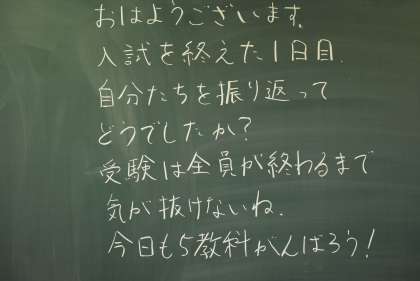 おはようございます。
入試を終えた1日目.
自分たちを振り返って
どうでしたか?
受験は全員が終わるまで
気が抜けないね.
今日も5教科がんばろう!